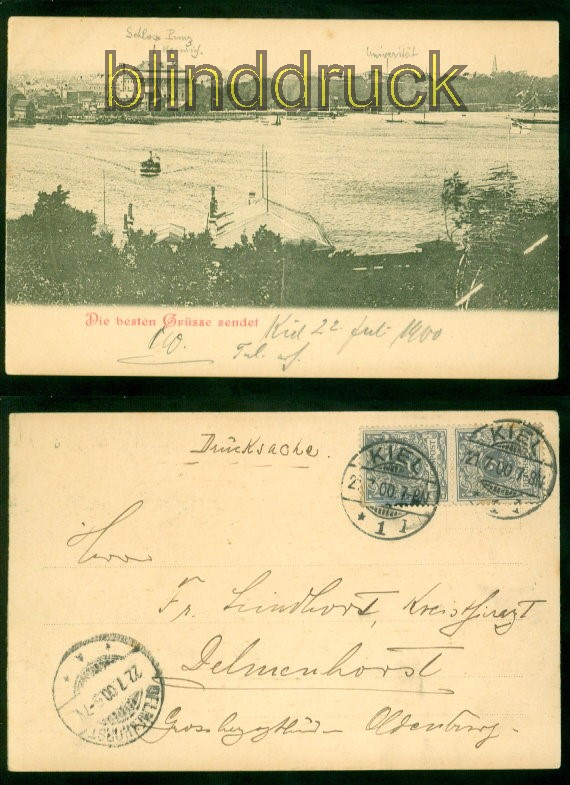 Schloss Prinz
Heinrich.
Universität
blinddruck
Die besten Grüsse sendet
Kiel 22. Juli 1900
Drucksache.
KIEL
21.7.00.7-8N.
* 1 I
KIEL
21.7.00.7-8N.
Herrn
Fr. Lindhorst, Kreisthierarzt
Delmenhorst
Grossherzogthum Oldenburg.
DELMENHORST
22.7.00.